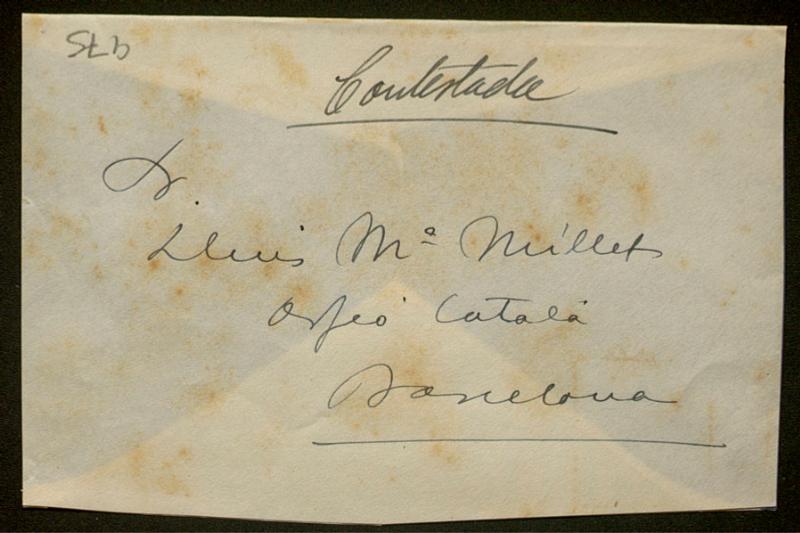 Contestada
Sr.
Lluis Mª Millet
Orfeó Català
Barcelona